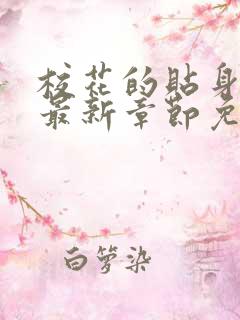 校花的贴身
最新章节免
白箩染